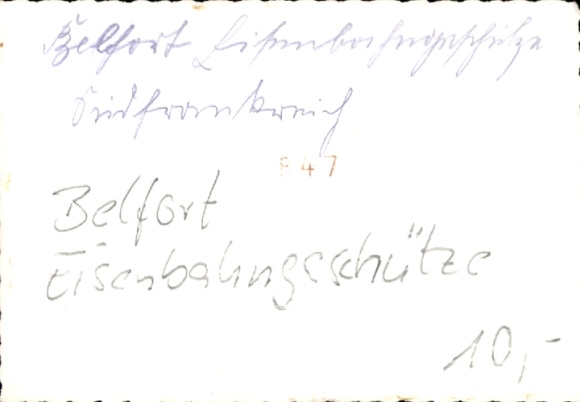 Belfort Eisenbahngeschütze
Südfrankreich
847
Belfort
Eisenbahngeschütze
10,-